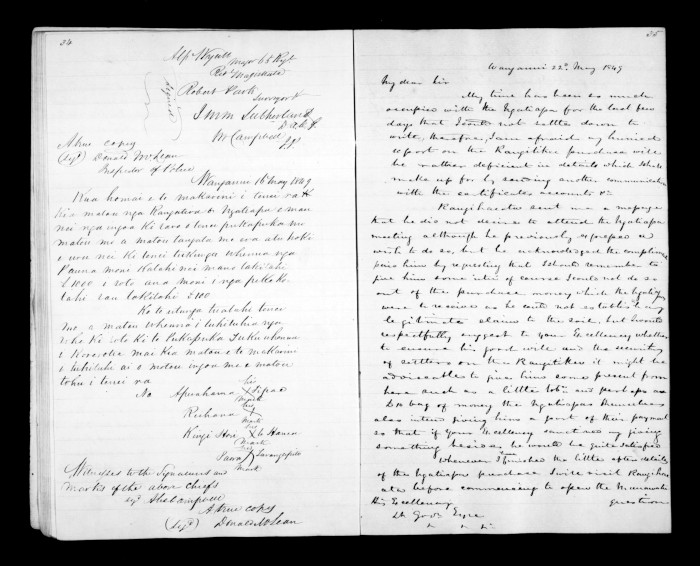 34
Alf Wyatt Major 65 Regt
Res Magistrate
Robert Park
Surveyor &
Witnesses
D. A. C. G.
W Campbell
J P
A true copy
(Sigd) Donald McLean
Inspector of Police
Wanganui 16th May 1849
Kua homai e te makarini i tenei ra
kia matou nga Rangatira o Ngatiapa e mau
nei nga ingoa ki raro o tenei pukapuka mo
matou mo a matou tangata mo era atu hoki
o mou nei ki tenei tukunga whenua nga
Pauna moni kotahi nei mano takitahi
£1000 i roto ana moni i nga peke ko
tahi rau takitahi £100
Ko te utunga tuatahi tenei
mo a matou whenua i tuhituhia nga
rohe ki roto ki te Pukapuka Tuku whenua
i Korerotia mai kia matou e te makarini
i tuhituhia ai o matou ingoa me o matou
tohu i tenei ra
Na Aperahama X Tipae
his
Mark
Reihana X
his
Mark
Kingi Hori X te Hanea
his
Mark
X
Mark
Witnesses to the Signatures and
marks of the above chiefs
Sigd
A true copy
(Sigd) Donald McLean
35
Wanganui 22nd May 1849
My dear Sir
My time has been so much
occupied with the Ngatiapa for the last few
days that I could not settle down to
write, therefore, I am afraid my hurried
report on the Rangitikei purchase will
be rather deficient in details which I shall
make up for by sending another communication
with the certificates accounts &c
Rangihaeata sent me a message
that he did not desire to attend the Ngatiapa
meeting although he previously expressed a
wish to do so, but he acknowledged the compliment
paid him by requesting that I should remember to
give him some utu of course I could not do so
out of the purchase money which the Ngatiapa
were to receive as he could not establish any
legitimate claims to the soil, but I would
respectfully suggest to your Excellency whether
to ensure his good will and the security
of settlers on the Rangitikei it might be
adviseable to give him some present from
here such as a little tobo and perhaps a
bag of money the Ngatiapa themselves
also intend giving him a part of their payment
so that if your Excellency sanctioned my giving
something besides he would be quite satisfied
Whenever I finished the little after details
of the Ngatiapa purchase I will visit Rangihae
ata before commencing to open the Manawatu
His Excellency question
Lt Govr Eyre